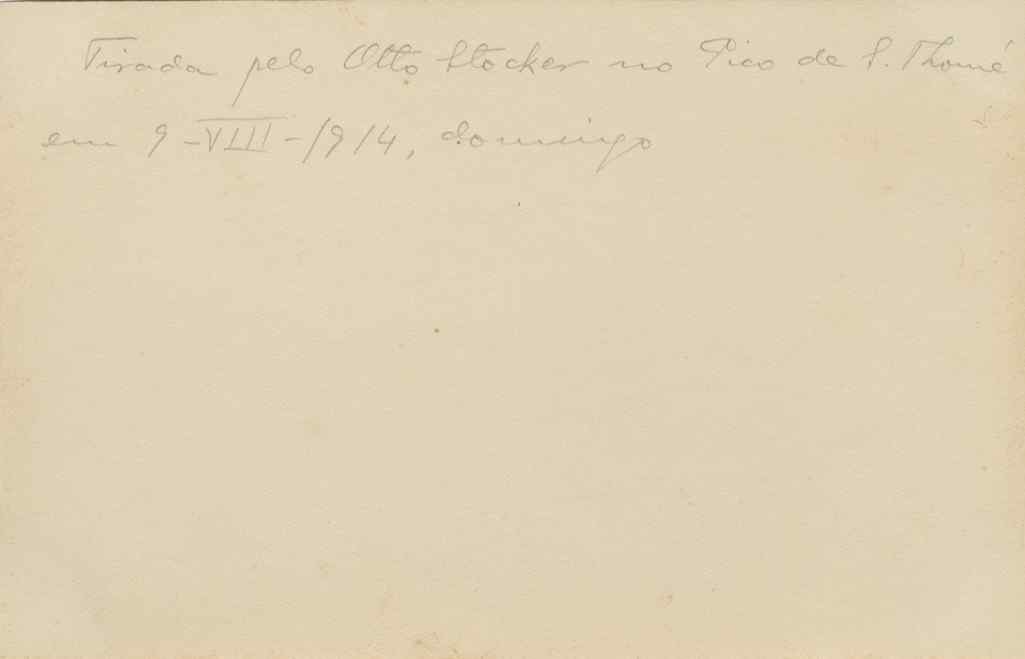 Tirada pelo Otto Stocker no Pico de S. Thomé
em 9-VIII-1914, domingo